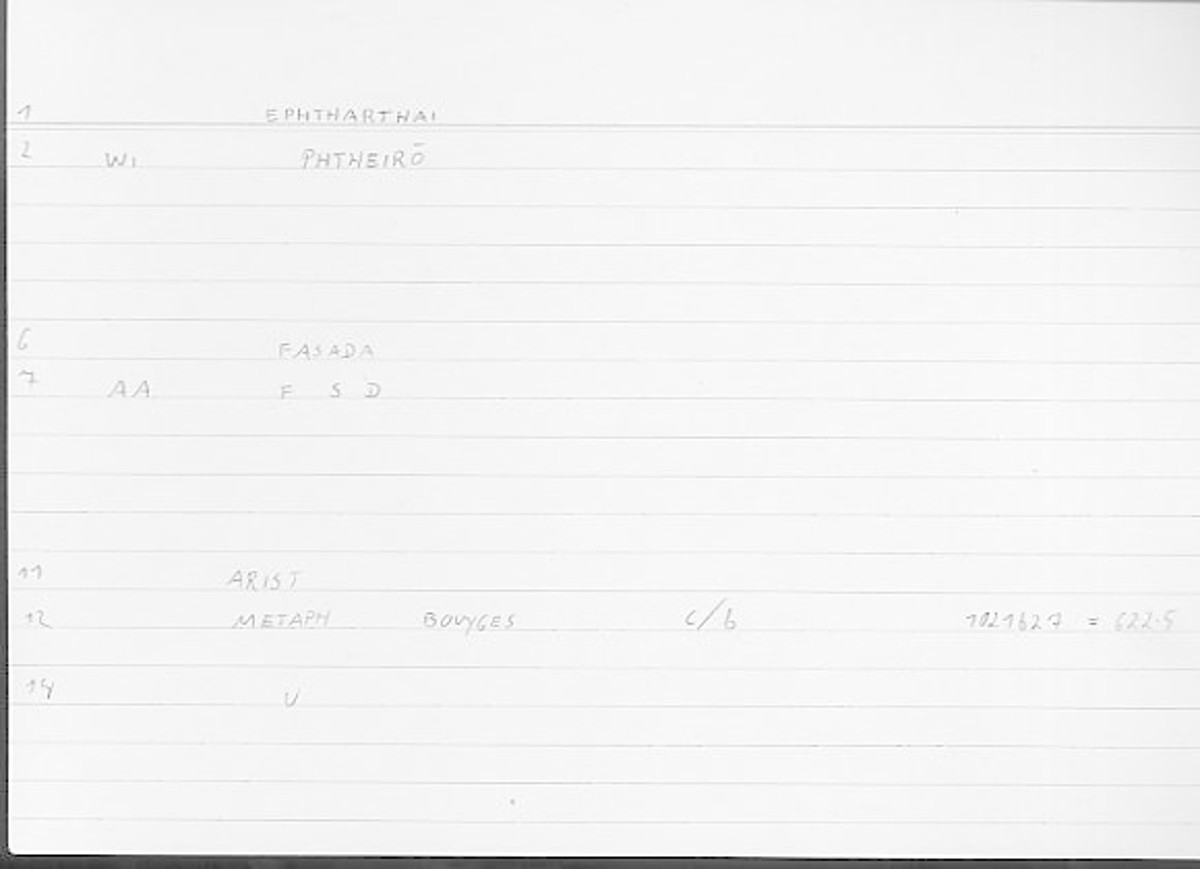 1 EPHTHARTHAI
2 WI PHTHEIRŌ
6 FASADA
7 AA F S D
11 ARIST
12 METAPH BOUYGES c/b 1021b27 = 622.5
14 V